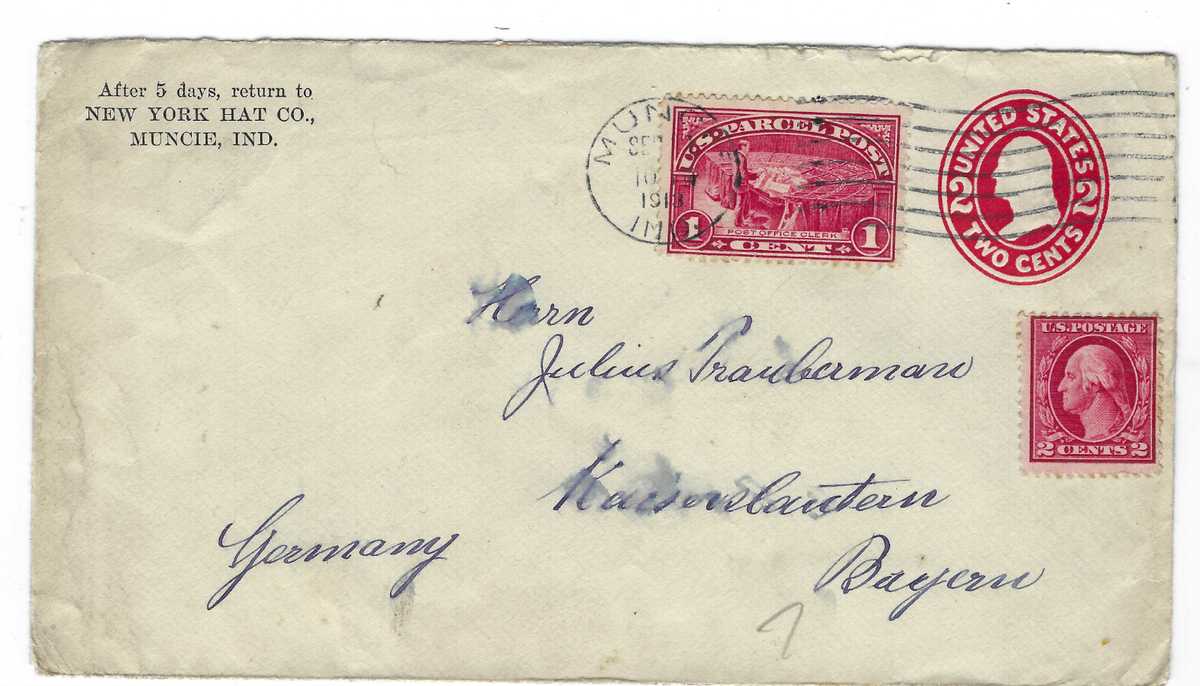 After 5 days, return to
NEW YORK HAT CO.,
MUNCIE, IND.
MUNC
SEP
10
1913
IND
U.S. PARCEL POST
POST OFFICE CLERK
1 CENT 1
UNITED STATES
2 2
TWO CENTS
U.S. POSTAGE
2 CENTS 2
Herrn
Julius Trauberman
Kaiserslautern
Germany
Bayern